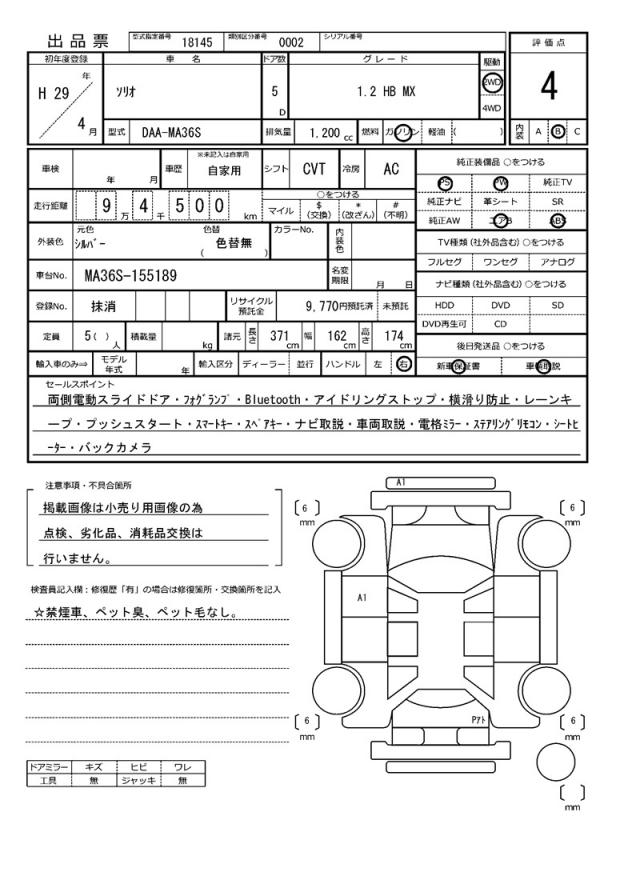 出品票 型式指定番号 18145 類別区分番号 0002 シリアル番号
評価点
初年度登録 車名 ドア数 グレード 駆動
H 29 年 4 月 ソリオ 5 D 1.2 HB MX 2WD 4WD
4
型式 DAA-MA36S 排気量 1.200 cc 燃料 ガソリン 軽油 ( )
内装 A B C
車検 年 月 車歴 ※未記入は自家用 自家用 シフト CVT 冷房 AC
純正装備品 ○をつける
PS PW 純正TV
走行距離 9 万 4 千 5 0 0 km
○をつける
マイル $ (交換) * (改ざん) # (不明)
純正ナビ 革シート SR
純正AW エアB ABS
外装色 元色 シルバー 色替 色替無 ( ) カラーNo. 内装色
TV種類 (社外品含む) ○をつける
フルセグ ワンセグ アナログ
車台No. MA36S-155189 名変期限 月 日
ナビ種類 (社外品含む) ○をつける
登録No. 抹消 リサイクル預託金 9,770円預託済 未預託
HDD DVD SD
DVD再生可 CD
定員 5 ( ) 人 積載量 kg 諸元 長さ 371 cm 幅 162 cm 高さ 174 cm
後日発送品 ○をつける
輸入車のみ⇒ モデル年式 年 輸入区分 ディーラー 並行 ハンドル 左 右
新車保証書 車輌取説
セールスポイント
両側電動スライドドア・フォグランプ・Bluetooth・アイドリングストップ・横滑り防止・レーンキ
ープ・プッシュスタート・スマートキー・スペアキー・ナビ取説・車両取説・電格ミラー・ステアリングリモコン・シートヒ
ーター・バックカメラ
注意事項・不具合箇所
掲載画像は小売り用画像の為
点検、劣化品、消耗品交換は
行いません。
検査員記入欄：修復歴「有」の場合は修復箇所・交換箇所を記入
☆禁煙車、ペット臭、ペット毛なし。
A1
6 mm
6 mm
A1
Pアト
6 mm
6 mm
mm
ドアミラー キズ ヒビ ワレ
工具 無 ジャッキ 無